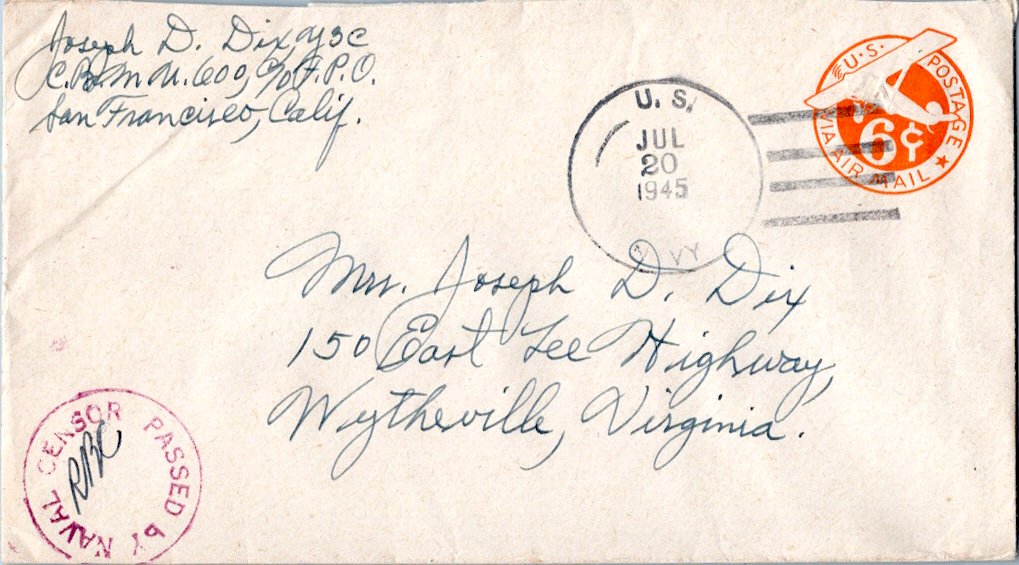 Joseph D. Dix, Y3C
C.B.M.U. 600, c/o F.P.O.
San Francisco, Calif.
U.S. POSTAGE
6¢
VIA AIR MAIL
U. S.
JUL
20
1945
NAVY
Mrs. Joseph D. Dix
150 East Lee Highway,
Wytheville, Virginia.
PASSED BY NAVAL CENSOR
RBC